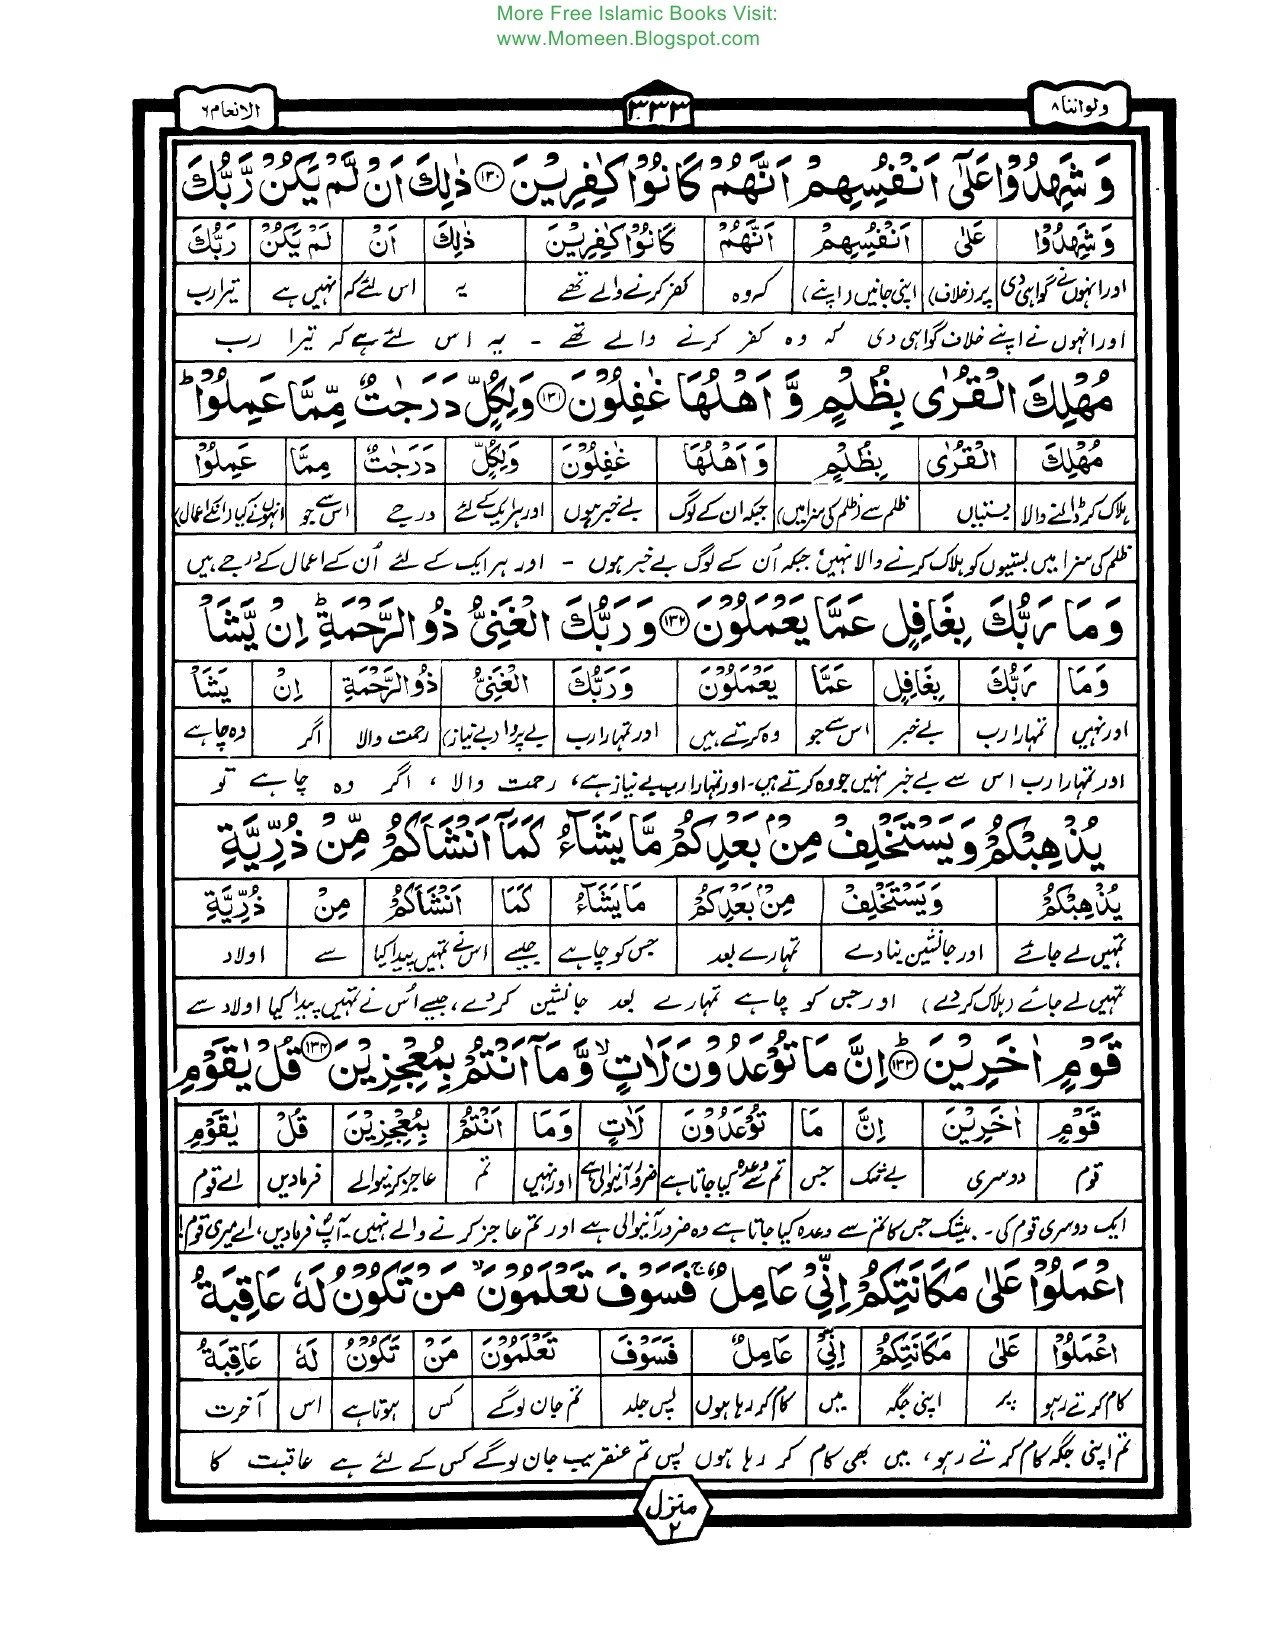 More Free Islamic Books Visit:
www.Momeen.Blogspot.com
ولواننا ۸ ۳۳۳ الانعام ۶
وَشَهِدُوْا عَلٰٓى اَنْفُسِهِمْ اَنَّهُمْ كَانُوْا كٰفِرِيْنَ ﴿۱۳۰﴾ ذٰلِكَ اَنْ لَّمْ يَكُنْ رَّبُّكَ
وَشَهِدُوْا عَلٰى اَنْفُسِهِمْ اَنَّهُمْ كَانُوْا كٰفِرِيْنَ ذٰلِكَ اَنْ لَمْ يَكُنْ رَبُّكَ
اور انہوں نے گواہی دی پر (خلاف) اپنی جانیں (اپنے) کہ وہ کفر کرنے والے تھے یہ اس لئے کہ نہیں ہے تیرا رب
اور انہوں نے اپنے خلاف گواہی دی کہ وہ کفر کرنے والے تھے - یہ اس لئے ہے کہ تیرا رب
مُهْلِكَ الْقُرٰى بِظُلْمٍ وَّاَهْلُهَا غٰفِلُوْنَ ﴿۱۳۱﴾ وَلِكُلٍّ دَرَجٰتٌ مِّمَّا عَمِلُوْا ؕ
مُهْلِكَ الْقُرٰى بِظُلْمٍ وَاَهْلُهَا غٰفِلُوْنَ وَلِكُلٍّ دَرَجٰتٌ مِمَّا عَمِلُوْا
ہلاک کر ڈالنے والا بستیاں ظلم سے (ظلم کی سزا میں) جبکہ ان کے لوگ بے خبر ہوں اور ہر ایک کے لئے درجے اس سے جو انہوں نے کیا (انکے اعمال)
ظلم کی سزا میں بستیوں کو ہلاک کرنے والا نہیں جبکہ اُن کے لوگ بے خبر ہوں - اور ہر ایک کے لئے اُن کے اعمال کے درجے ہیں
وَمَا رَبُّكَ بِغَافِلٍ عَمَّا يَعْمَلُوْنَ ﴿۱۳۲﴾ وَرَبُّكَ الْغَنِىُّ ذُو الرَّحْمَةِ ؕ اِنْ يَّشَاْ
وَمَا رَبُّكَ بِغَافِلٍ عَمَّا يَعْمَلُوْنَ وَرَبُّكَ الْغَنِىُّ ذُو الرَّحْمَةِ اِنْ يَشَاْ
اور نہیں تمہارا رب بے خبر اس سے جو وہ کرتے ہیں اور تمہارا رب بے پروا (بے نیاز) رحمت والا اگر وہ چاہے
اور تمہارا رب اس سے بے خبر نہیں جو وہ کرتے ہیں - اور تمہارا رب بے نیاز ہے، رحمت والا ، اگر وہ چاہے تو
يُذْهِبْكُمْ وَيَسْتَخْلِفْ مِنْۢ بَعْدِكُمْ مَّا يَشَآءُ كَمَآ اَنْشَاَكُمْ مِّنْ ذُرِّيَّةِ
يُذْهِبْكُمْ وَيَسْتَخْلِفْ مِنْۢ بَعْدِكُمْ مَا يَشَآءُ كَمَا اَنْشَاَكُمْ مِنْ ذُرِّيَّةِ
تمہیں لے جائے اور جانشین بنا دے تمہارے بعد جس کو چاہے جیسے اس نے تمہیں پیدا کیا سے اولاد
تمہیں لے جائے (ہلاک کر دے) اور جس کو چاہے تمہارے بعد جانشین کر دے، جیسے اُس نے تمہیں پیدا کیا اولاد سے
قَوْمٍ اٰخَرِيْنَ ﴿۱۳۳﴾ؕ اِنَّ مَا تُوْعَدُوْنَ لَاٰتٍ ۙ وَّمَآ اَنْتُمْ بِمُعْجِزِيْنَ ﴿۱۳۴﴾ قُلْ يٰقَوْمِ
قَوْمٍ اٰخَرِيْنَ اِنَّ مَا تُوْعَدُوْنَ لَاٰتٍ وَمَا اَنْتُمْ بِمُعْجِزِيْنَ قُلْ يٰقَوْمِ
قوم دوسری بے شک جس تم سے وعدہ کیا جاتا ہے ضرور آنیوالی ہے اور نہیں تم عاجز کرنیوالے فرمادیں اے قوم
ایک دوسری قوم کی - بیشک جس کا تم سے وعدہ کیا جاتا ہے وہ ضرور آنیوالی ہے اور تم عاجز کرنے والے نہیں - آپ فرمادیں، اے میری قوم!
اعْمَلُوْا عَلٰى مَكَانَتِكُمْ اِنِّىْ عَامِلٌ ۚ فَسَوْفَ تَعْلَمُوْنَ ۙ مَنْ تَكُوْنُ لَهٗ عَاقِبَةُ
اعْمَلُوْا عَلٰى مَكَانَتِكُمْ اِنِّىْ عَامِلٌ فَسَوْفَ تَعْلَمُوْنَ مَنْ تَكُوْنُ لَهٗ عَاقِبَةُ
کام کرتے رہو پر اپنی جگہ میں کام کر رہا ہوں پس جلد تم جان لو گے کس ہوتا ہے اس آخرت
تم اپنی جگہ کام کرتے رہو، میں بھی کام کر رہا ہوں پس تم عنقریب جان لو گے کس کے لئے ہے عاقبت کا
منزل ۲